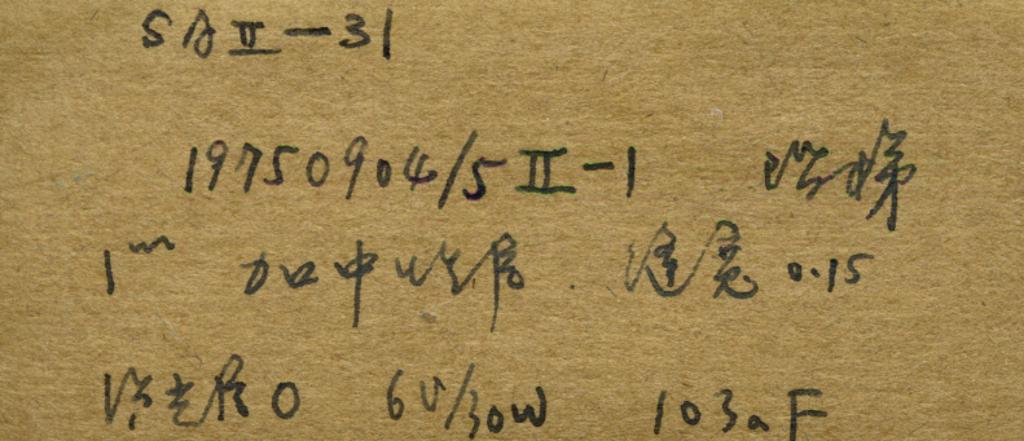 SAII-31
19750904/5II-1 阶梯
1m 加中性 缝宽 0.15
滤光 0 6V/30W 103aF